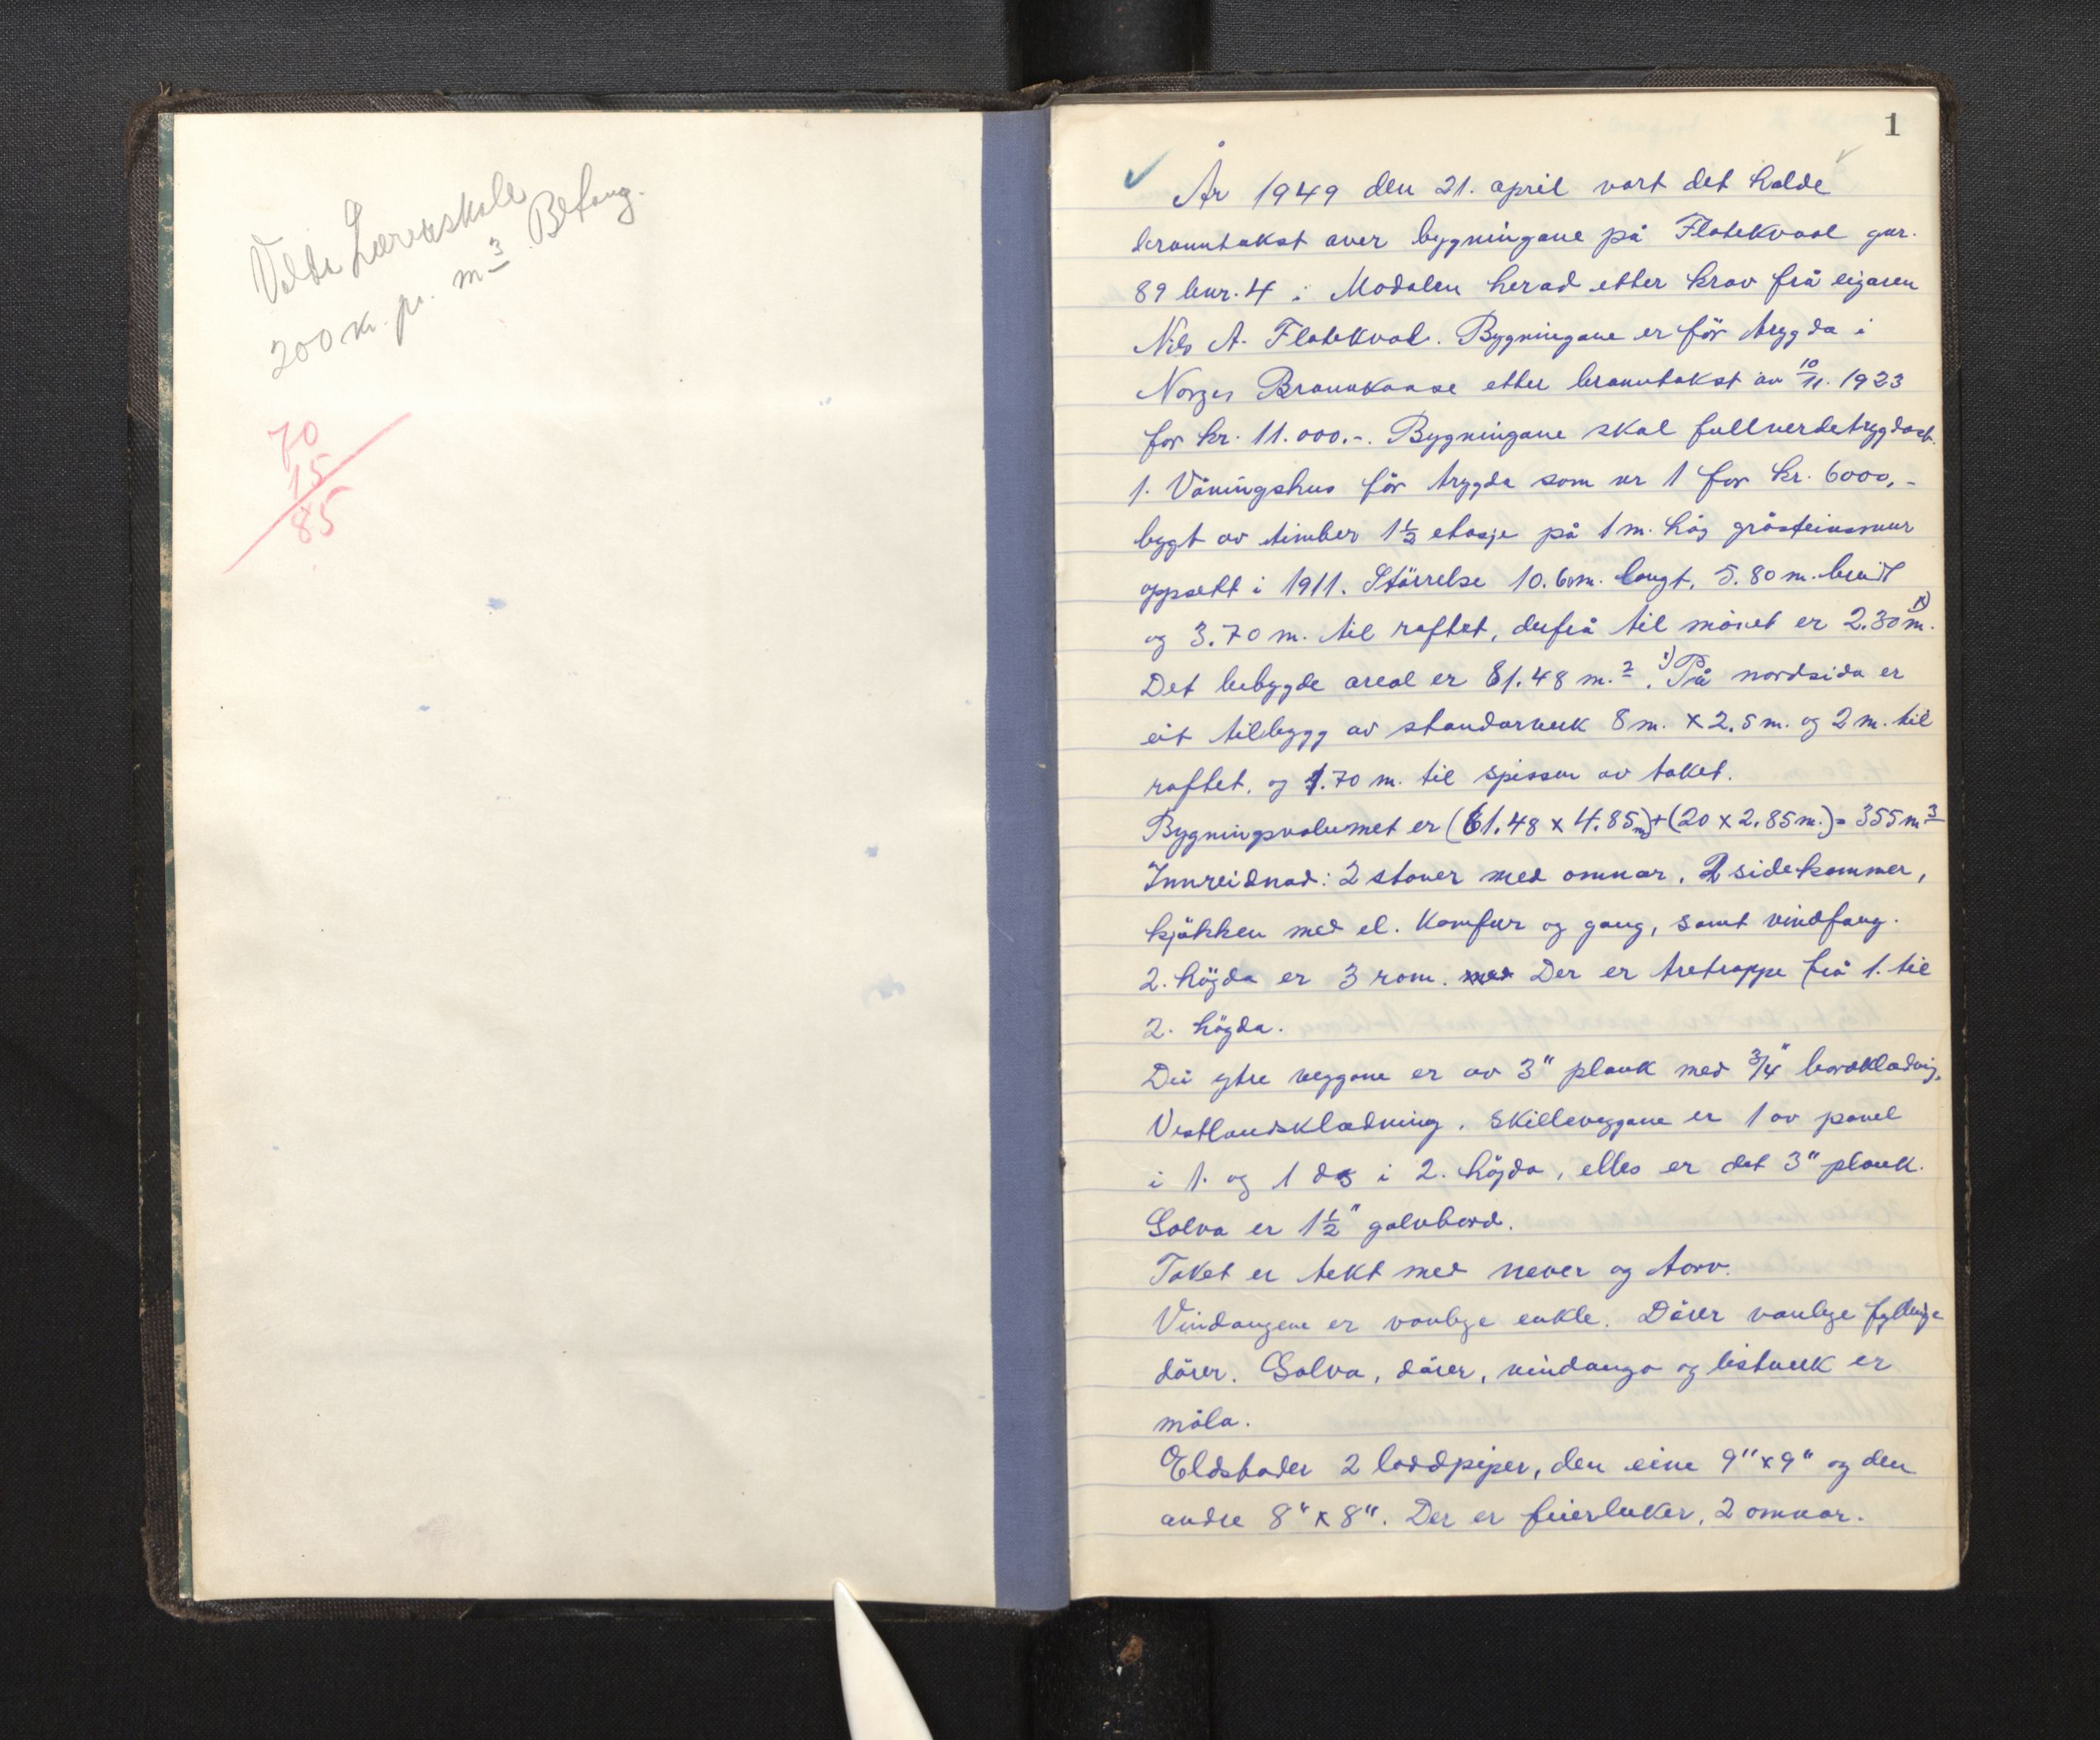 Lærarskole
200 kr. pr. m³ Betong.
70
15
85
1
År 1949 den 21. april vart det halde
branntakst over bygningane på Flatekvaal gnr.
89 bnr. 4 i Modalen herad etter krav frå eigaren
Nils A. Flatekval. Bygningane er för trygda i
Norges Brannkasse etter branntakst av 10/11. 1923
for kr. 11.000.-. Bygningane skal fullverdetrygdast.
1. Våningshus för trygda som nr 1 for kr. 6000,-
bygt av timber 1½ etasje på 1 m. høg gråsteinsmur
oppsett i 1911. Störrelse 10.60m. langt, 5.80 m. breidt
og 3.70 m. til raftet, derfrå til mönet er 2.30 m. x)
Det bebygde areal er 61.48 m.². x) På nordsida er
eit tilbygg av standarverk 8 m. x 2.5 m. og 2 m. til
raftet, og 1.70 m. til spissen av taket.
Bygningsvolumet er (61.48 x 4.85m)+(20 x 2.85m.)= 355 m³
Innreidnad: 2 stover med omnar, 2 sidekammer,
kjökken med el. komfur og gang, samt vindfang.
2. högda er 3 rom. med Der er tretrappe frå 1. til
2. högda.
Dei ytre veggane er av 3" plank med ¾" bordklædnig,
Vestlandsklædning. Skilleveggane er 1 av panel
i 1. og 1 do i 2. högda, elles er det 3" plank.
Golva er 1½" golvbord.
Taket er tekt med never og torv.
Vindaugene er vanlege enkle. Dörer vanlege fyllings
dörer. Golva, dörer, vindauga og listverk er
måla.
Eldstader 2 loddpiper, den eine 9" x 9" og den
andre 8" x 8". Der er feierluker, 2 omnar.